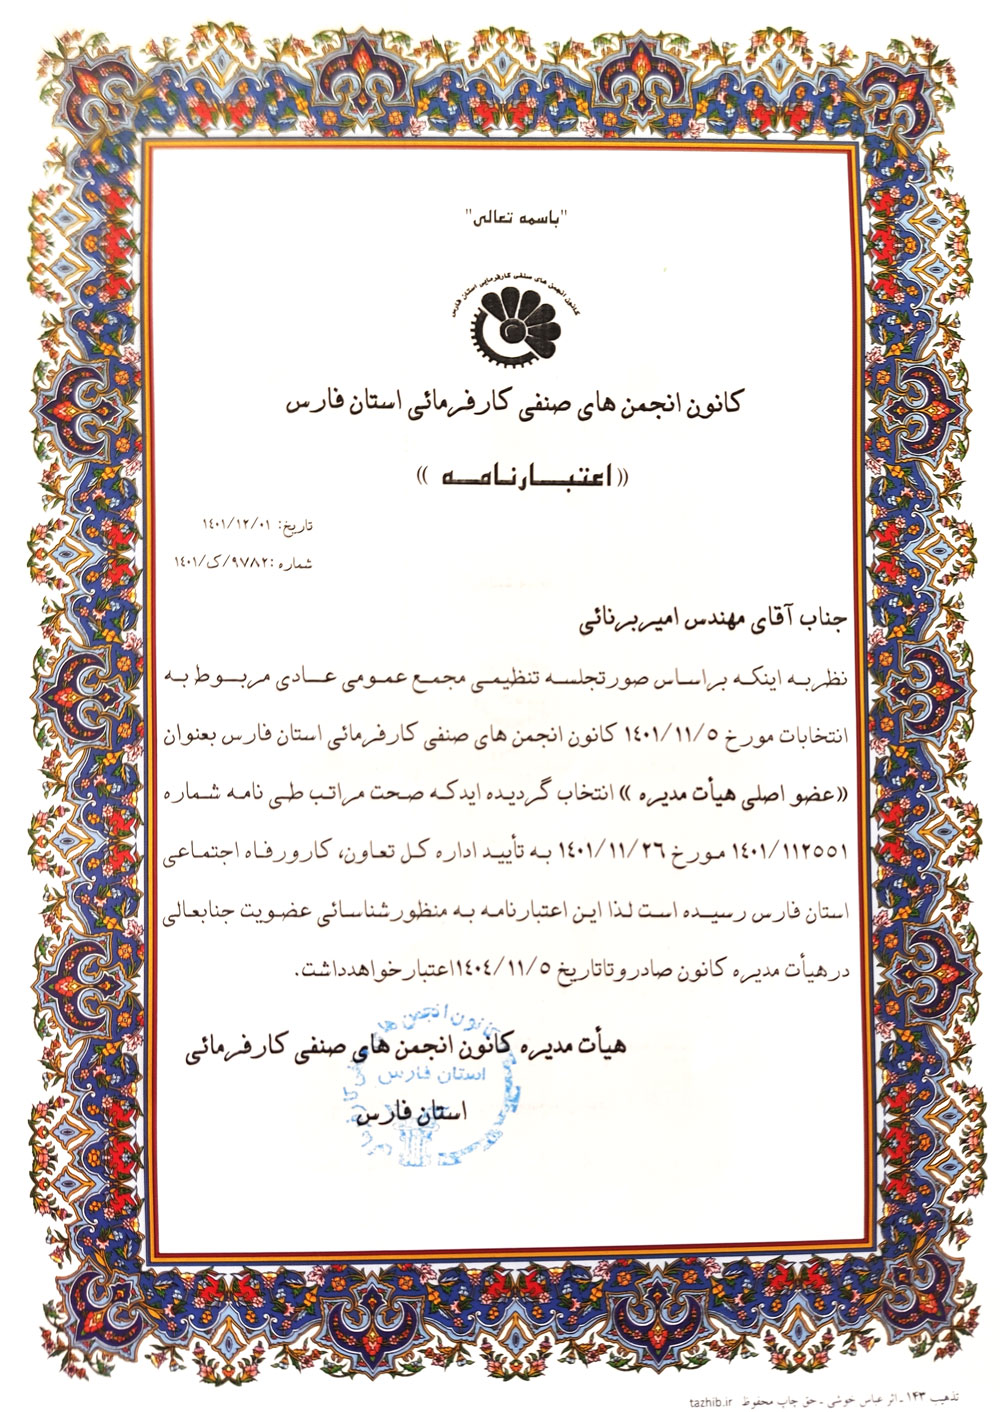 "باسمه تعالی"
کانون انجمن های صنفی کارفرمایی استان فارس
کانون انجمن های صنفی کارفرمائی استان فارس
((اعتبـــارنامـــه))
تاریخ: ۱٤۰۱/۱۲/۰۱
شماره :۹۷۸۲/ک/۱٤۰۱
جناب آقای مهندس امیربرنائی
نظربه اینکه براساس صورتجلسه تنظیمی مجمع عمومی عادی مربوط به
انتخابات مورخ ۱٤۰۱/۱۱/۵ کانون انجمن های صنفی کارفرمائی استان فارس بعنوان
((عضو اصلی هیأت مدیره )) انتخاب گردیده ایدکه صحت مراتب طی نامه شماره
۱٤۰۱/۱۱۲۵۵۱ مورخ ۱٤۰۱/۱۱/۲۶ به تأیید اداره کل تعاون، کارورفاه اجتماعی
استان فارس رسیده است لذا این اعتبارنامه به منظورشناسائی عضویت جنابعالی
درهیأت مدیره کانون صادروتاتاریخ ۱٤۰٤/۱۱/۵اعتبارخواهدداشت.
هیأت مدیره کانون انجمن های صنفی کارفرمائی
استان فارس
استان فارس
تذهیب ۱۴۳ ـ اثر عباس خوشی ـ حق چاپ محفوظ tazhib.ir